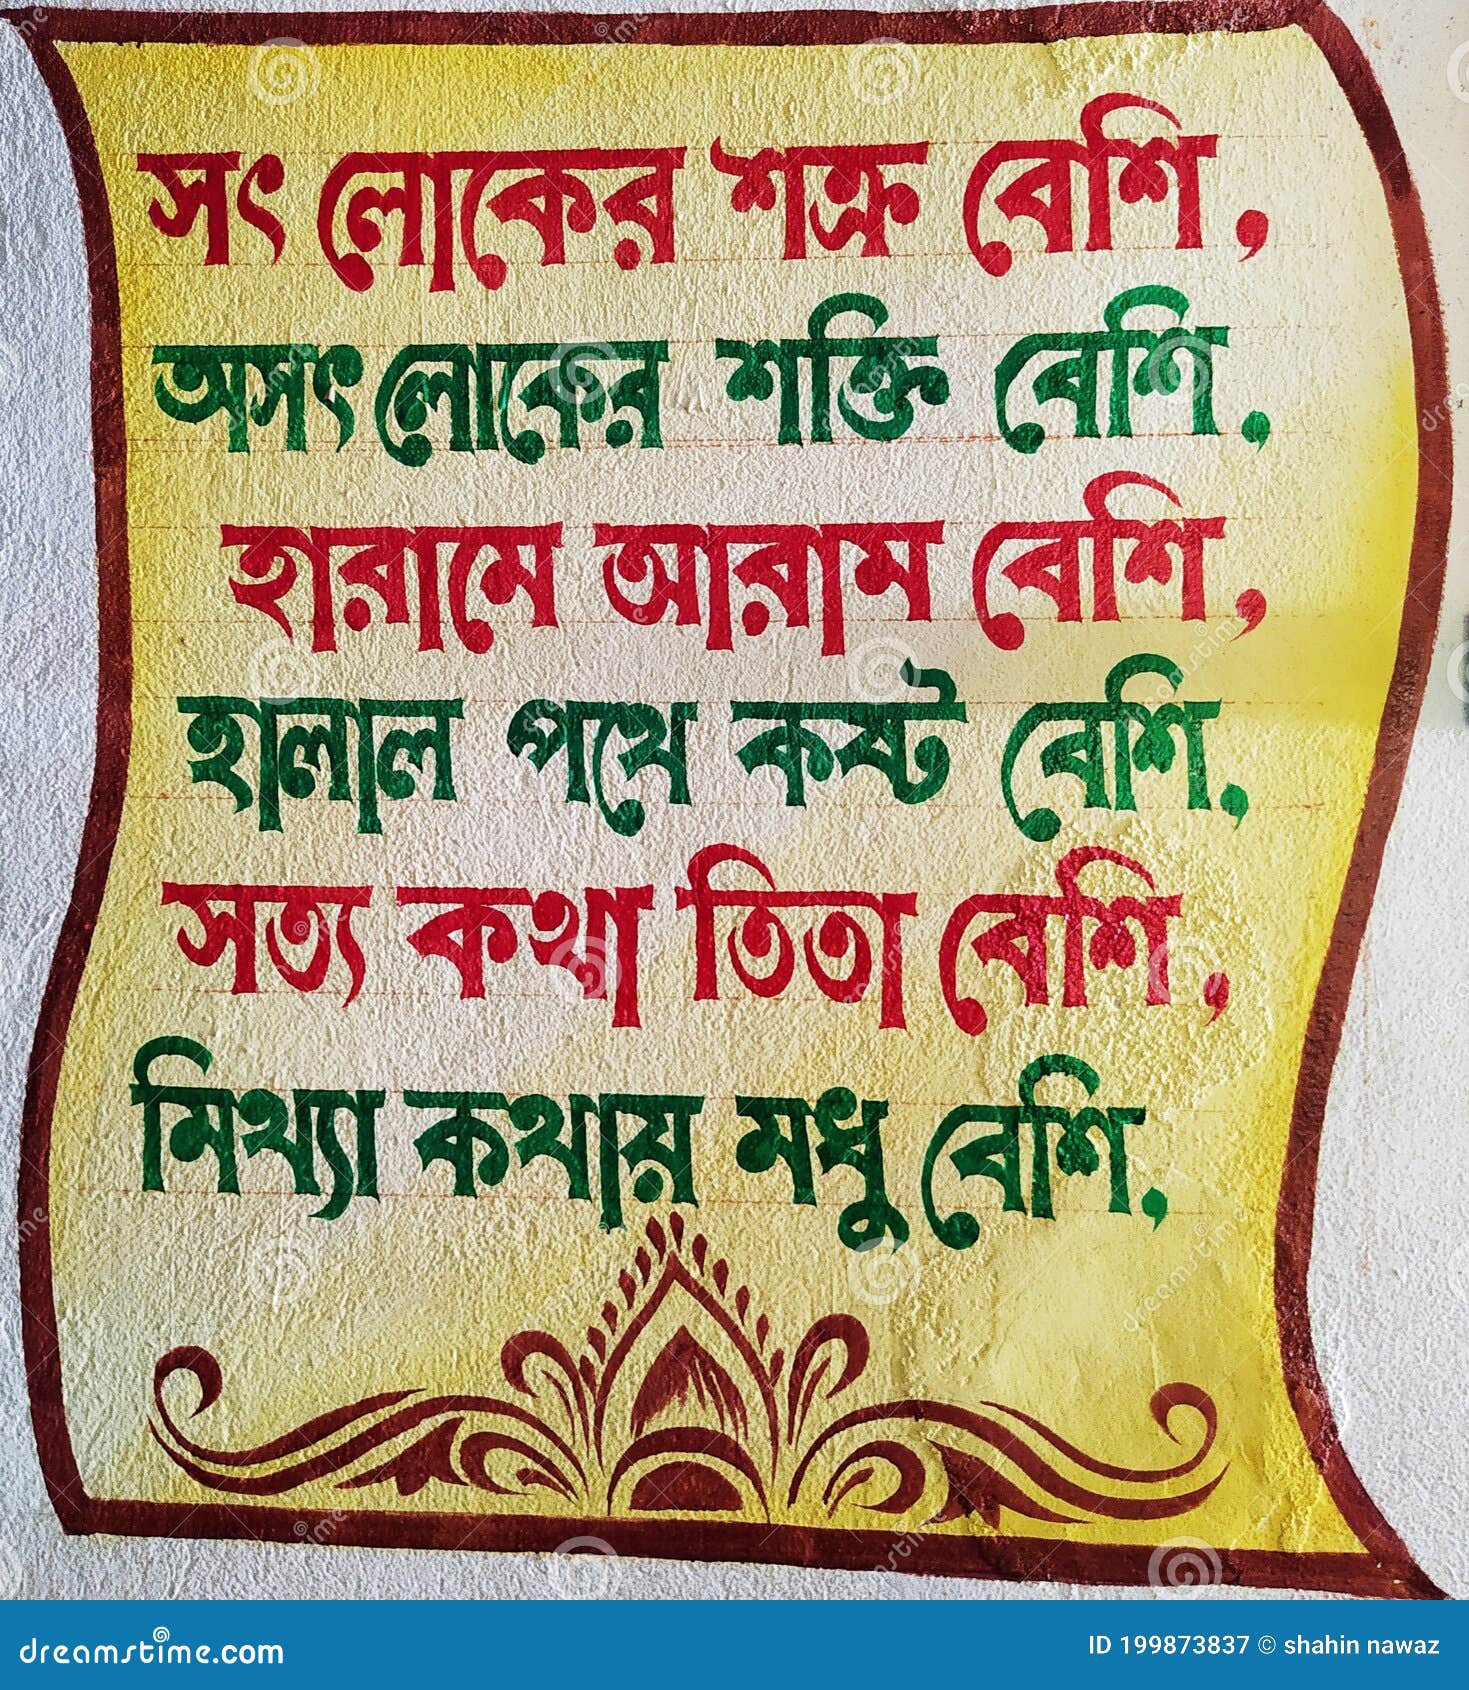 সৎ লোকের শত্রু বেশি,
অসৎ লোকের শক্তি বেশি,
হারামে আরাম বেশি,
হালাল পথে কষ্ট বেশি,
সত্য কথা তিতা বেশি,
মিথ্যা কথায় মধু বেশি,
dreamstime.com
ID 199873837 © shahin nawaz